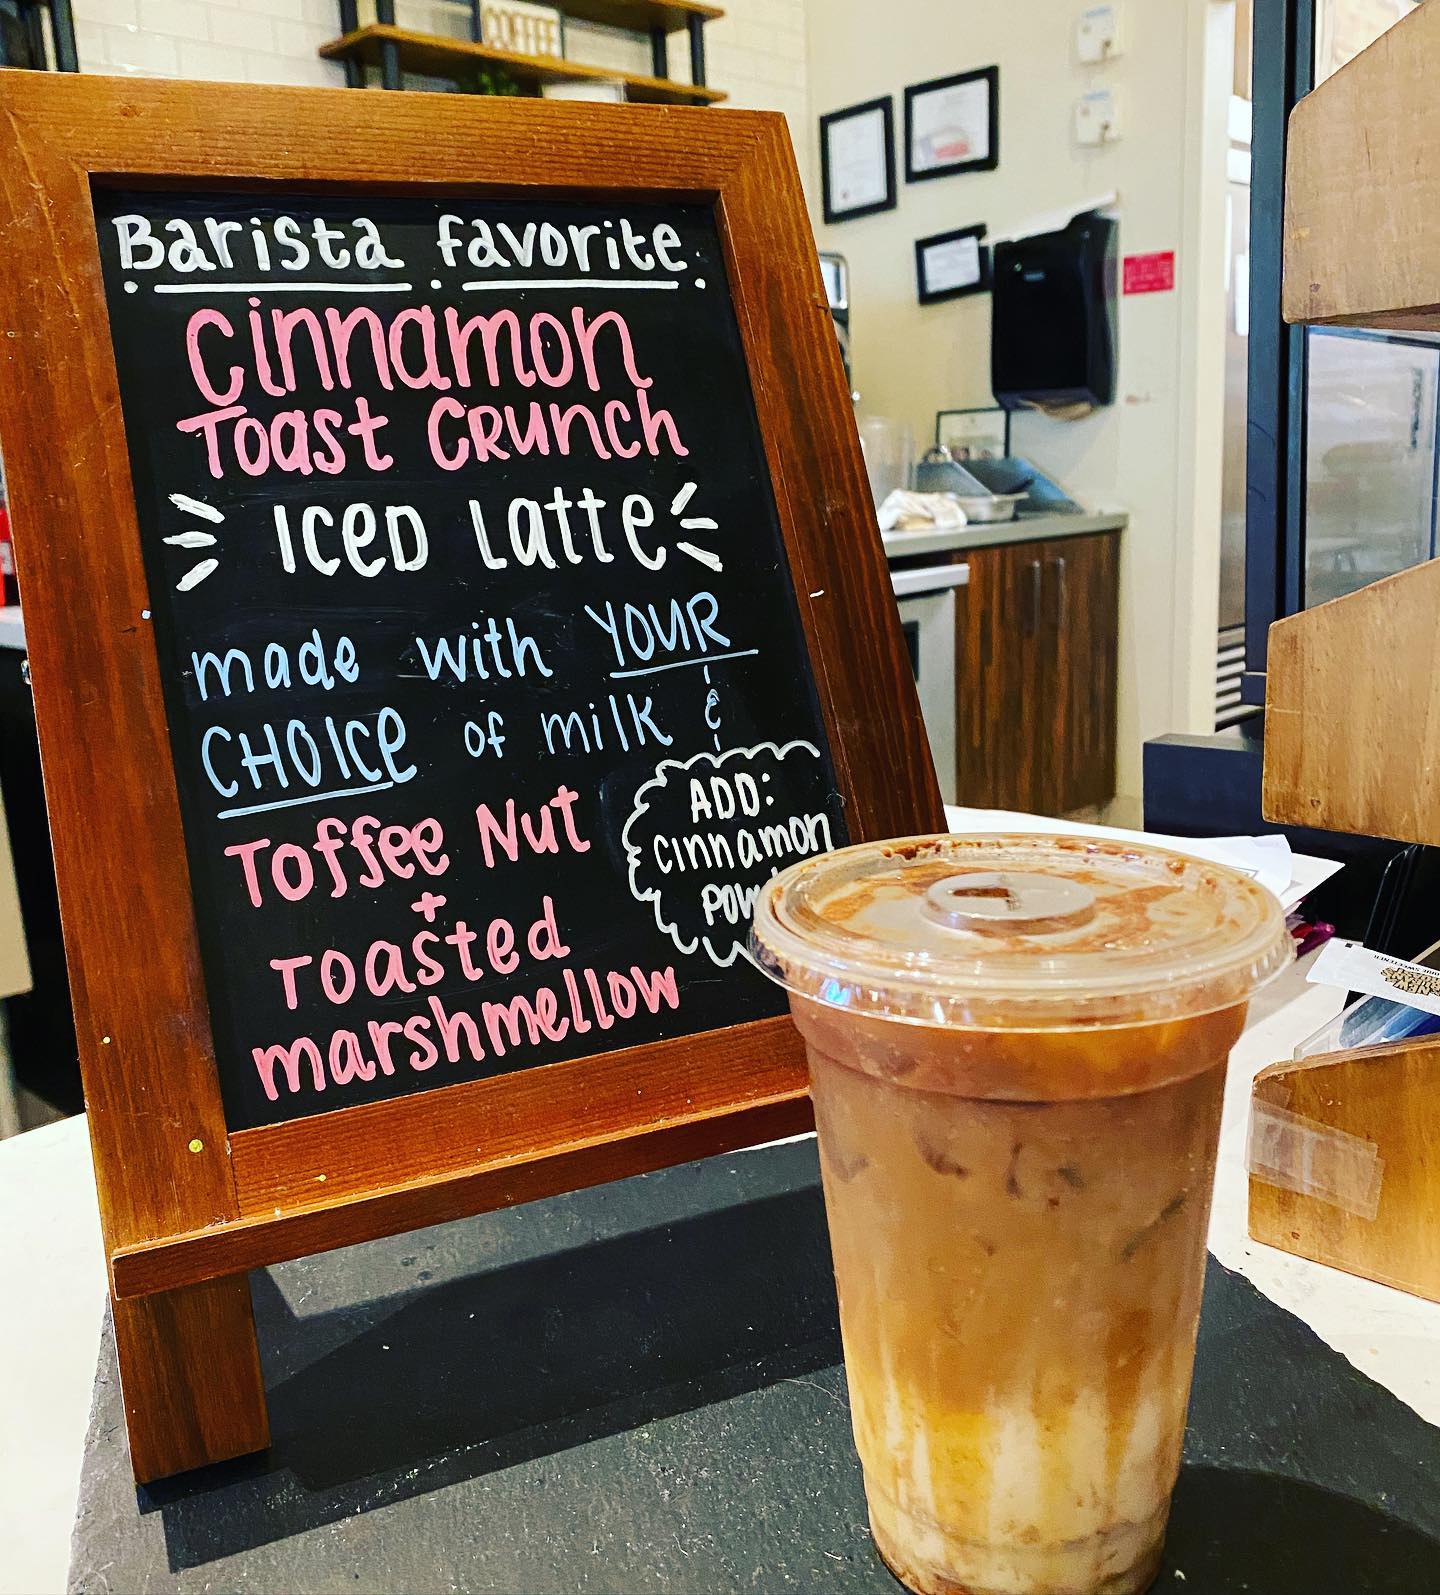 COFFEE
Barista favorite
Cinnamon
Toast Crunch
Iced Latte
made with YOUR
CHOICE of milk &
Toffee Nut
+
Toasted
marshmellow
ADD:
cinnamon